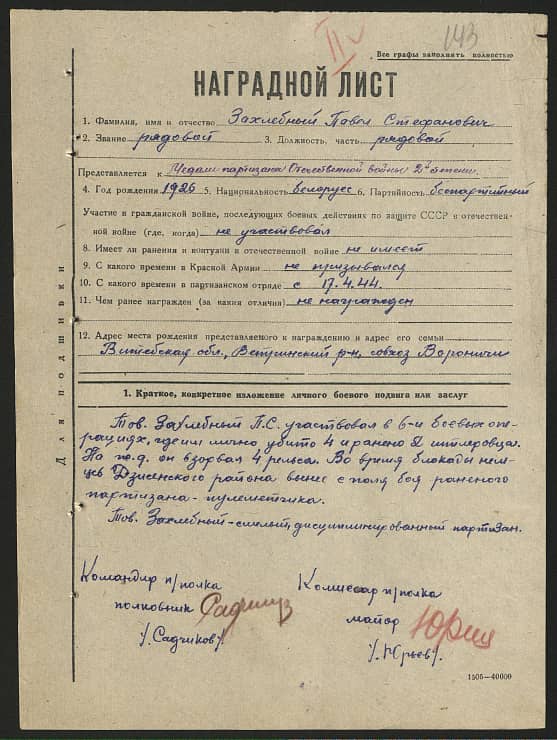 143
II
Все графы заполнять полностью
НАГРАДНОЙ ЛИСТ
1. Фамилия, имя и отчество Захлебный Павел Стефанович
2. Звание рядовой 3. Должность, часть рядовой
Представляется к Медали партизана Отечественной войны 2й степени.
4. Год рождения 1926 5. Национальность белорус 6. Партийность беспартийный
Участие в гражданской войне, последующих боевых действиях по защите СССР и отечествен-
ной войне (где, когда) не участвовал
8. Имеет ли ранения и контузии в отечественной войне не имеет
9. С какого времени в Красной Армии не призывался
10. С какого времени в партизанском отряде с 17.4.44.
11. Чем ранее награжден (за какие отличия) не награжден
12. Адрес места рождения представляемого к награждению и адрес его семьи
Витебская обл., Ветринский р-н, совхоз Вороничи
Для подшивки
1. Краткое, конкретное изложение личного боевого подвига или заслуг
Тов. Захлебный П.С. участвовал в 6-и боевых опе-
рациях, где им лично убито 4 и ранено 2 гитлеровца.
На ж.д. он взорвал 4 рельса. Во время блокады нем-
цев Дзисенского района вынес с поля боя раненого
партизана-пулеметчика.
Тов. Захлебный-смелый, дисциплинированный партизан.
Командир п/полка
полковник Садчиков
/Садчиков/.
Комиссар п/полка
майор Юрьев
/Юрьев/.
1505—40000